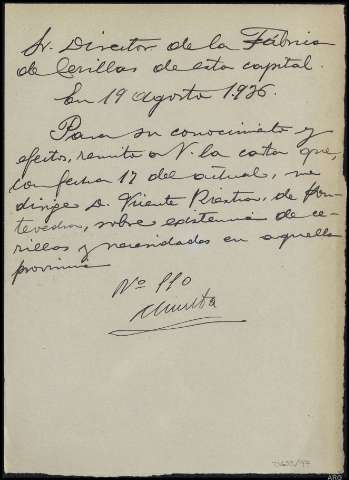 Sr. Director de la Fábrica
de Cerillas de esta capital.
En 19 agosto 1936.
Para su conocimiento y
efectos, remito a V. la carta que,
con fecha 17 del actual, me
dirige D. Vicente Riestra, de Pon-
tevedra, sobre existencia de ce-
rillas y necesidades en aquella
provincia
Nº 110
ARG